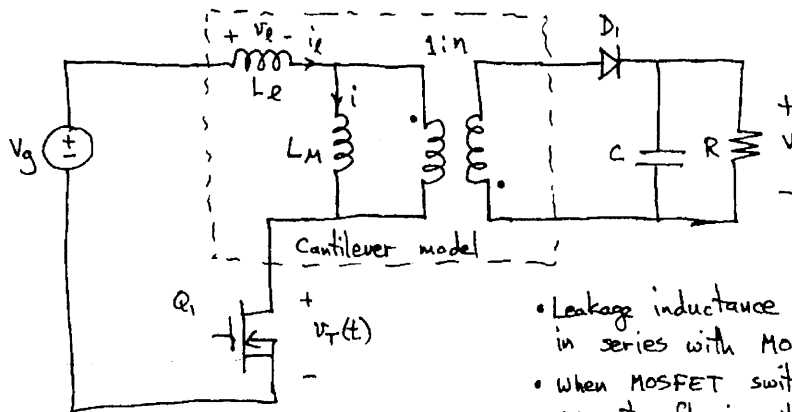 + vℓ -
iℓ
Lℓ
1:n
D1
i
LM
Vg
+
-
C
R
+
V
-
Cantilever model
Q1
+
vT(t)
-
• Leakage inductance
in series with MO
• When MOSFET swit